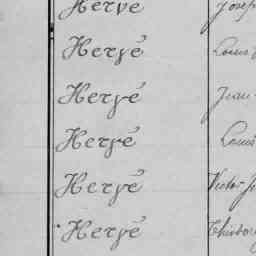 Hervé Josep
Hervé Louis
Hervé Jean
Hervé Louis
Hervé Victor J
Hervé Théodor